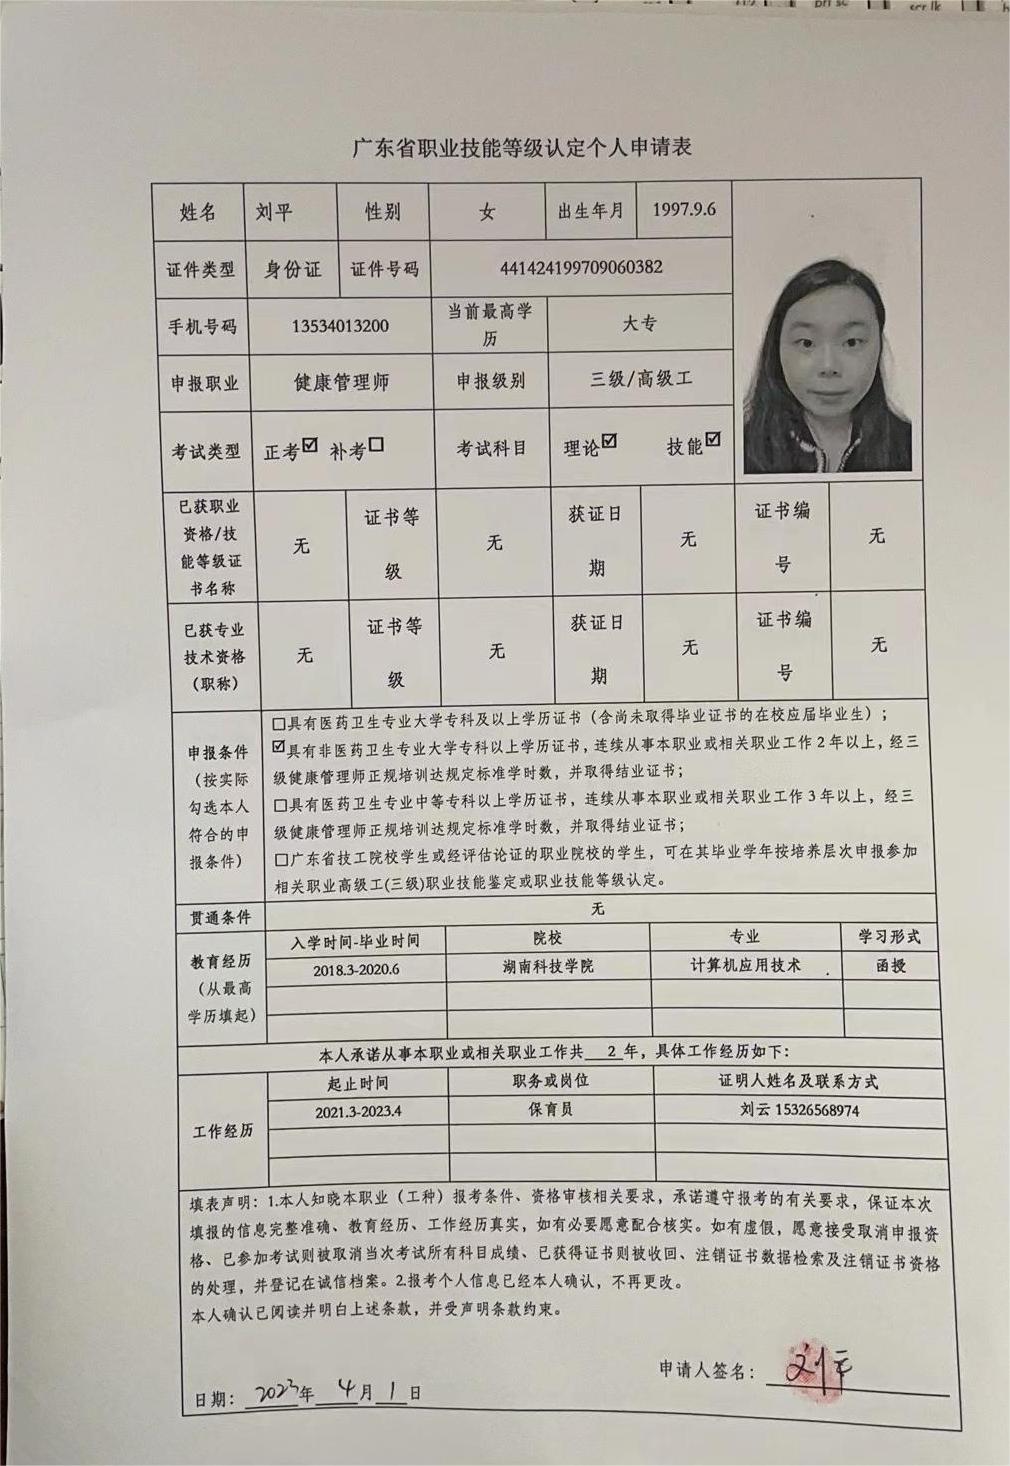 广东省职业技能等级认定个人申请表
姓名 刘平 性别 女 出生年月 1997.9.6
证件类型 身份证 证件号码 441424199709060382
手机号码 13534013200 当前最高学
历 大专
申报职业 健康管理师 申报级别 三级/高级工
考试类型 正考☑ 补考☐ 考试科目 理论☑ 技能☑
已获职业
资格/技
能等级证
书名称 无 证书等
级 无 获证日
期 无 证书编
号 无
已获专业
技术资格
（职称） 无 证书等
级 无 获证日
期 无 证书编
号 无
申报条件
（按实际
勾选本人
符合的申
报条件）
☐具有医药卫生专业大学专科及以上学历证书（含尚未取得毕业证书的在校应届毕业生）；
☑具有非医药卫生专业大学专科以上学历证书，连续从事本职业或相关职业工作2年以上，经三
级健康管理师正规培训达规定标准学时数，并取得结业证书；
☐具有医药卫生专业中等专科以上学历证书，连续从事本职业或相关职业工作3年以上，经三
级健康管理师正规培训达规定标准学时数，并取得结业证书；
☐广东省技工院校学生或经评估论证的职业院校的学生，可在其毕业学年按培养层次申报参加
相关职业高级工(三级)职业技能鉴定或职业技能等级认定。
贯通条件 无
教育经历
（从最高
学历填起）
入学时间-毕业时间 院校 专业 学习形式
2018.3-2020.6 湖南科技学院 计算机应用技术 函授
本人承诺从事本职业或相关职业工作共 2 年，具体工作经历如下：
工作经历
起止时间 职务或岗位 证明人姓名及联系方式
2021.3-2023.4 保育员 刘云 15326568974
填表声明：1.本人知晓本职业（工种）报考条件、资格审核相关要求，承诺遵守报考的有关要求，保证本次
填报的信息完整准确、教育经历、工作经历真实，如有必要愿意配合核实。如有虚假，愿意接受取消申报资
格、已参加考试则被取消当次考试所有科目成绩、已获得证书则被收回、注销证书数据检索及注销证书资格
的处理，并登记在诚信档案。2.报考个人信息已经本人确认，不再更改。
本人确认已阅读并明白上述条款，并受声明条款约束。
申请人签名：刘平
日期：2023年4月1日